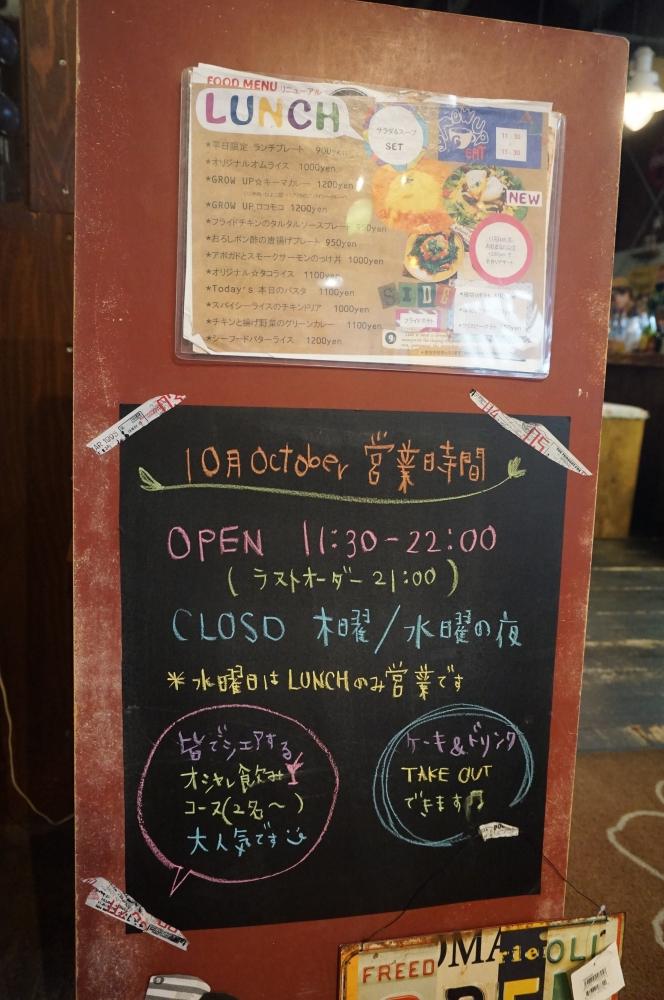 FOOD MENU リニューアル
LUNCH
サラダ&スープ
SET
11:30
15:30
EAT
*平日限定 ランチプレート 900yen
*オリジナルオムライス 1000yen
*GROW UP☆キーマカレー 1200yen
*GROW UPロコモコ 1200yen
*フライドチキンのタルタルソースプレート 950yen
*おろしポン酢の唐揚げプレート 950yen
*アボガドとスモークサーモンのっけ丼 1000yen
*オリジナル☆タコライス 1100yen
*Today's 本日のパスタ 1100yen
*スパイシーライスのチキンドリア 1000yen
*チキンと揚げ野菜のグリーンカレー 1100yen
*シーフードバターライス 1200yen
NEW
SIDE
フライドポテト
10月October 営業時間
OPEN 11:30-22:00
(ラストオーダー 21:00)
CLOSD 木曜/水曜の夜
*水曜日はLUNCHのみ営業です
皆でシェアする
オシャレ飲み
コース(2名〜)
大人気です
ケーキ&ドリンク
TAKE OUT
できます♫
FREED
OMA
OLI